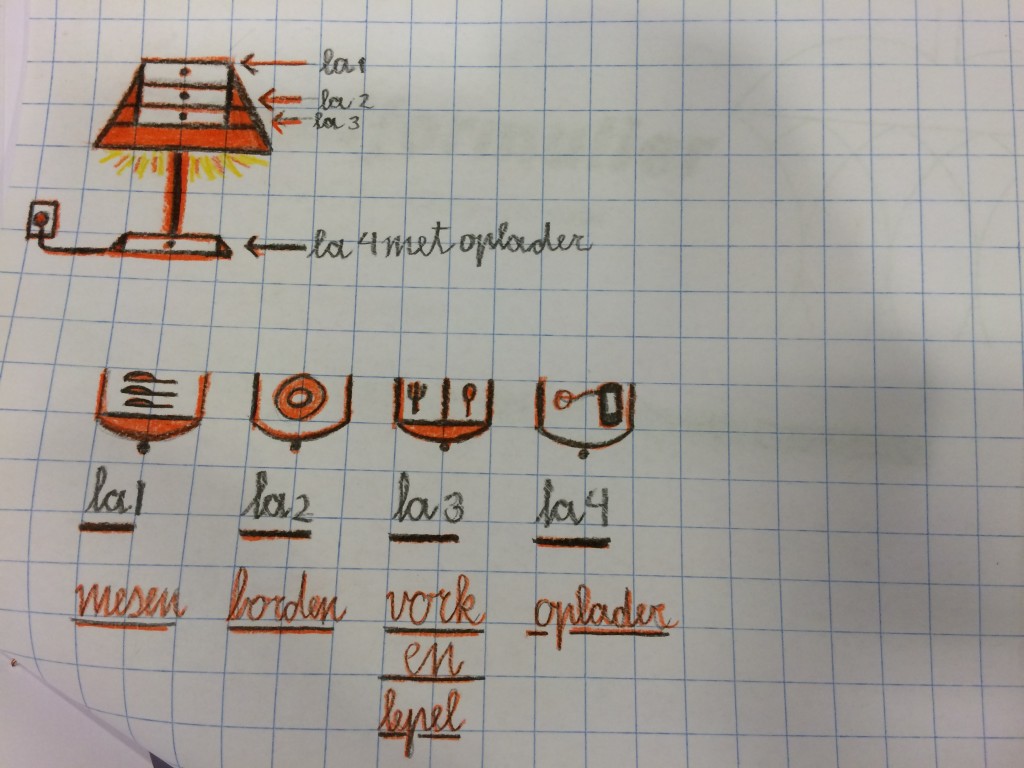 la 1
la 2
la 3
la 4 met oplader
la 1
la 2
la 3
la 4
mesen
borden
vork
en
lepel
oplader